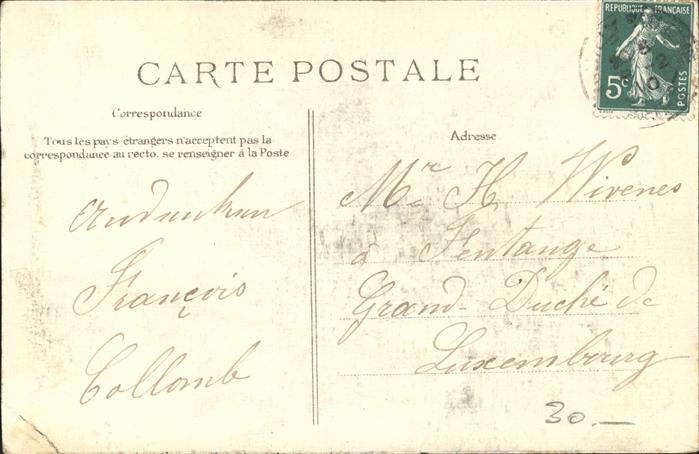 CARTE POSTALE
REPUBLIQUE FRANÇAISE
5c
POSTES
Correspondance
Tous les pays étrangers n'acceptent pas la
correspondance au recto. se renseigner à la Poste
Andenken
François
Collomb
Adresse
Mr H. Wivenes
à Fentange
Grand-Duché de
Luxembourg
30.—